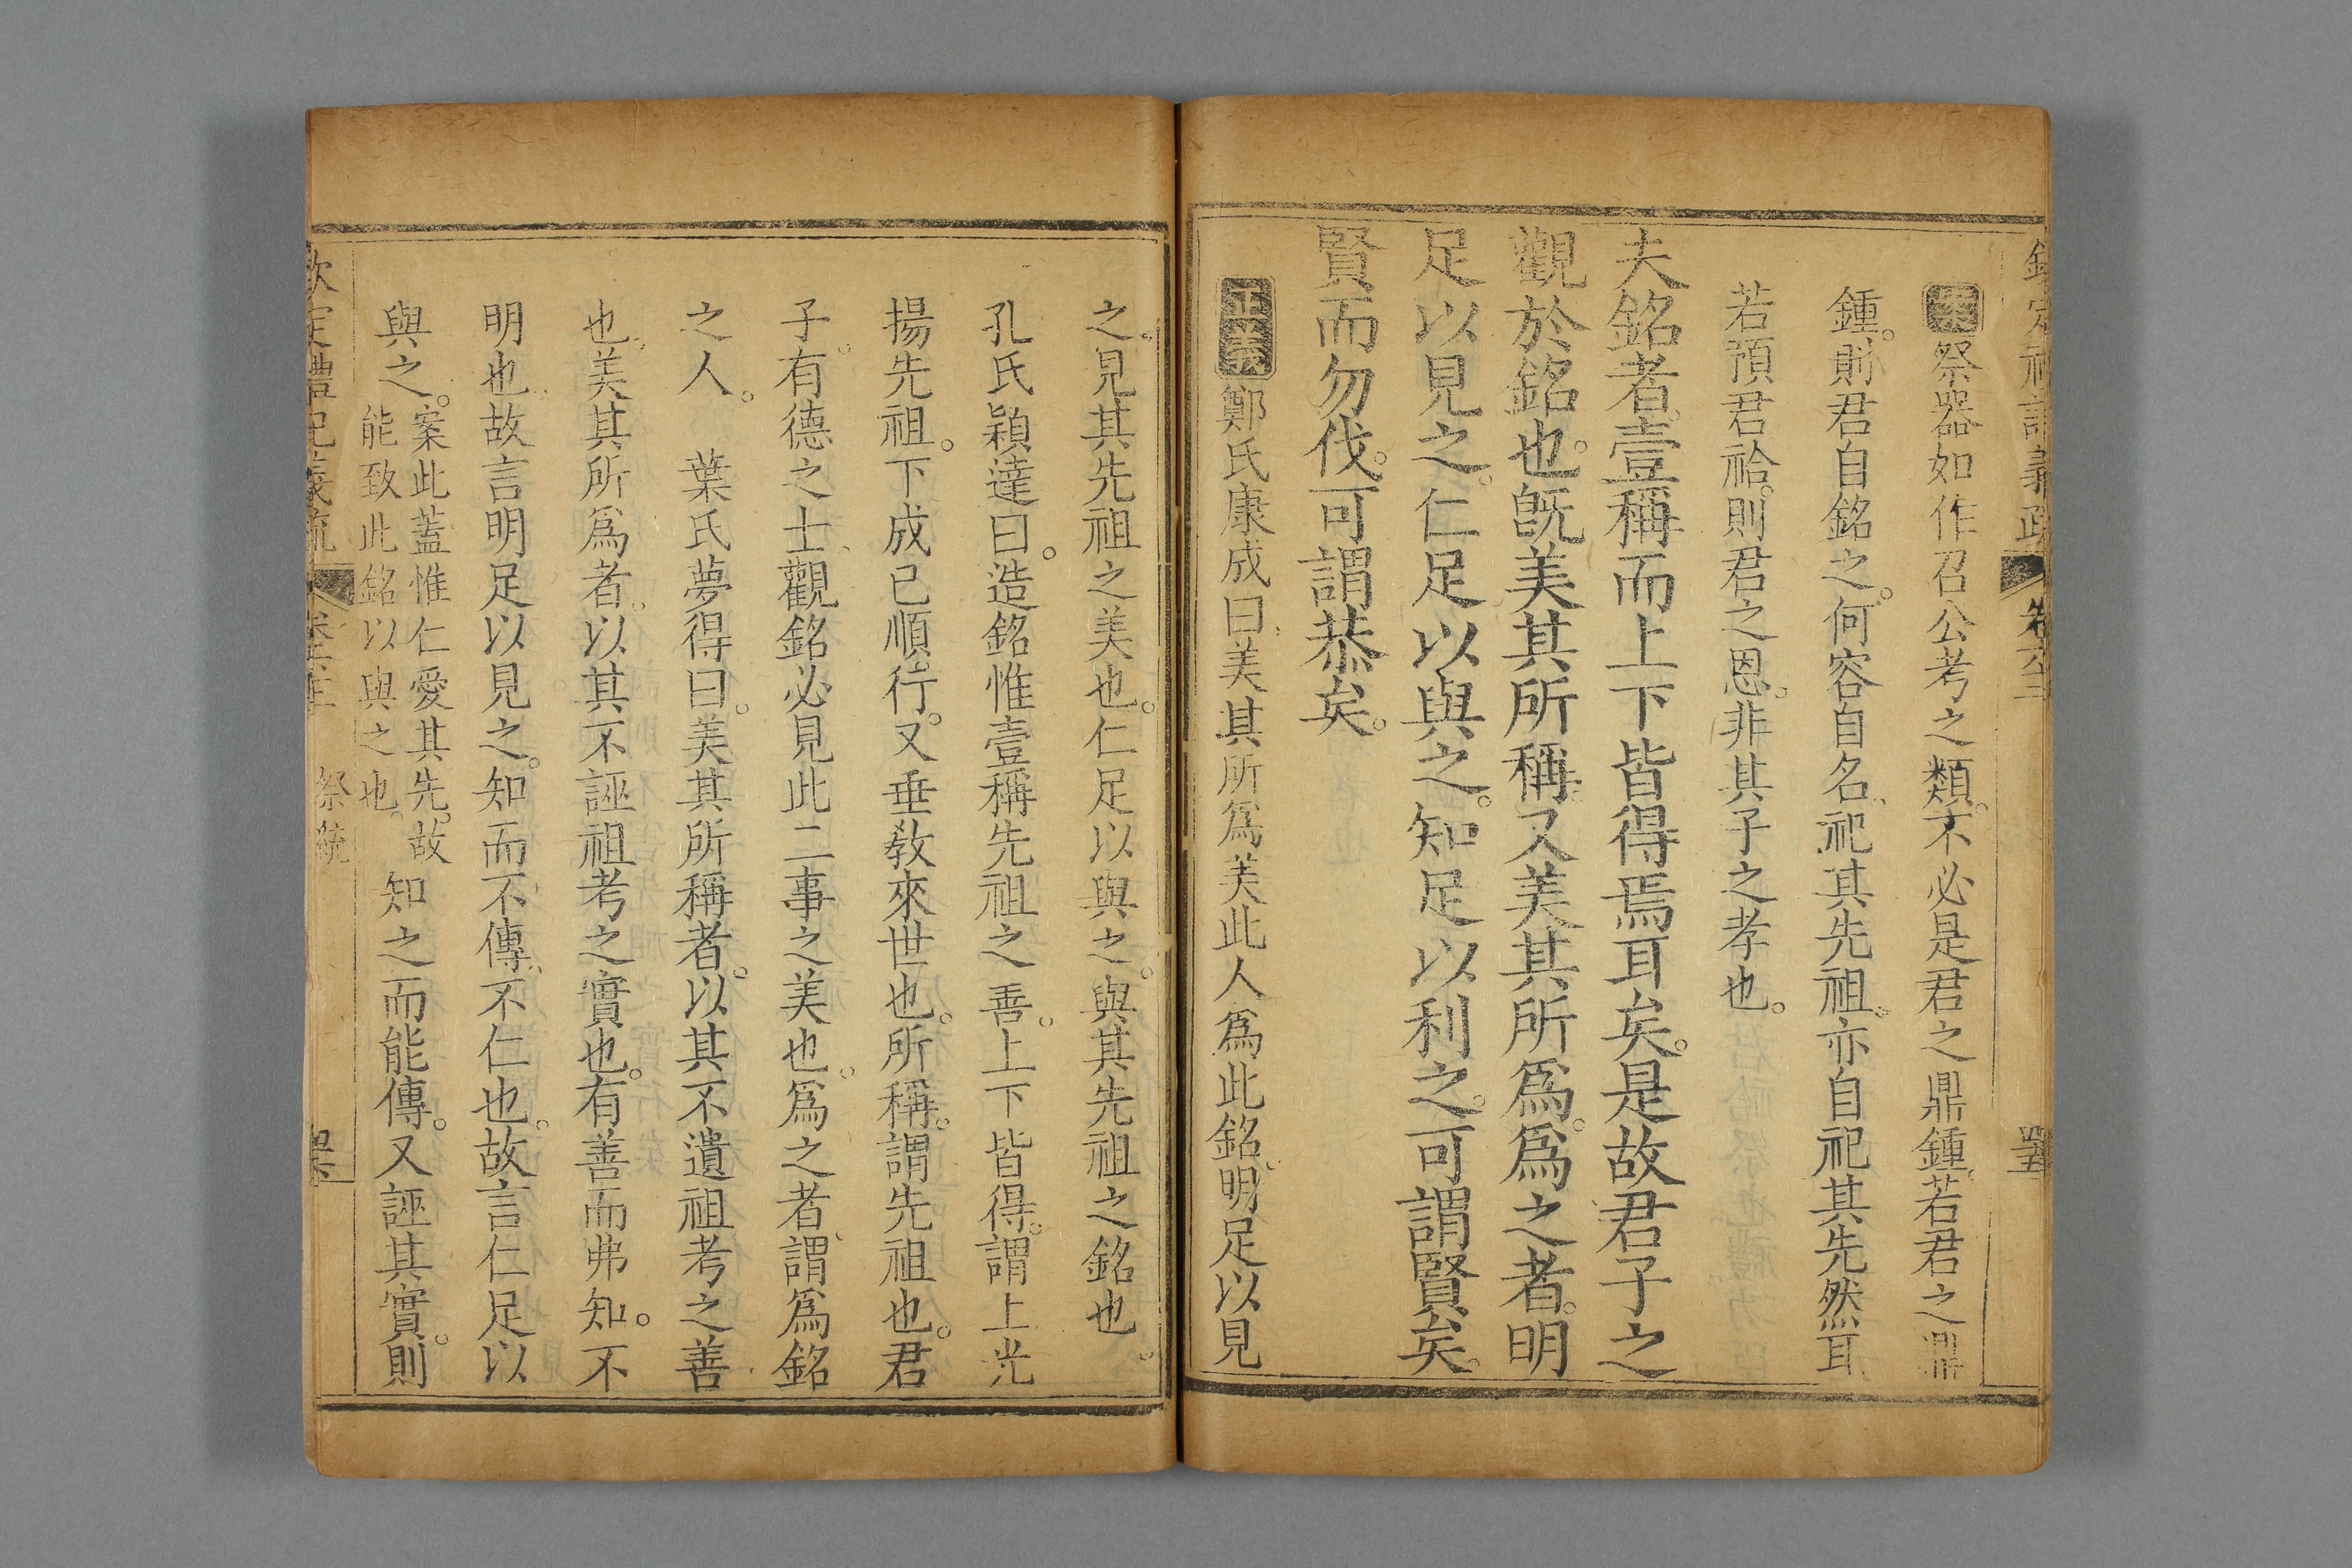 欽定禮記義疏 卷六十三
案祭器如作召公考之類。不必是君之鼎鍾。若君之鼎
鍾。則君自銘之。何容自名、祀其先祖。亦自祀其先然耳
若預君祫。則君之恩。非其子之孝也。
夫銘者。壹稱而上下皆得焉耳矣。是故君子之
觀於銘也。旣美其所稱。又美其所爲。爲之者。明
足以見之。仁足以與之。知足以利之。可謂賢矣。
賢而勿伐。可謂恭矣。
正義鄭氏康成曰、美其所爲美此人爲此銘。明足以見
之。見其先祖之美也。仁足以與之。與其先祖之銘也。
孔氏穎達曰。造銘惟壹稱先祖之善。上下皆得。謂上光
揚先祖。下成己順行。又垂敎來世也。所稱。謂先祖也。君
子有德之士、觀銘必見此二事之美也。爲之者、謂爲銘
之人。 葉氏夢得曰。美其所稱者。以其不遺祖考之善
也。美其所爲者。以其不誣祖考之實也。有善而弗知。不
明也。故言明足以見之。知而不傳、不仁也。故言仁足以
與之。案此蓋惟仁愛其先。故能致此銘以與之也。知之而能傳。又誣其實。則
欽定禮記義疏 卷六十三 祭統